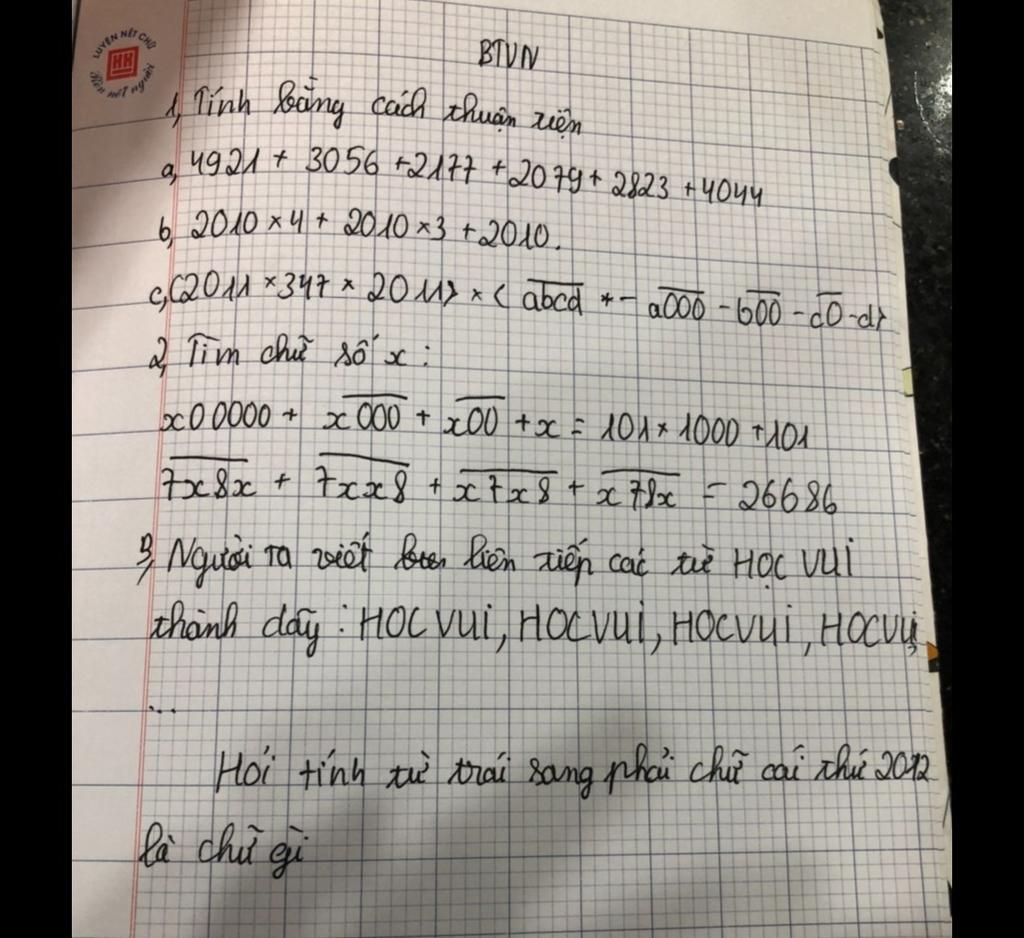 LUYỆN NÉT CHỮ
HH
Rèn nết người
BTVN
1, Tính bằng cách thuận tiện
a, 4921 + 3056 + 2177 + 2079 + 2823 + 4044
b, 2010 × 4 + 2010 × 3 + 2010.
c, (2011 × 347 × 2011) × ( abcd - a000 - b00 - c0 - d)
2, Tìm chữ số x :
x00000 + x000 + x00 + x = 101 × 1000 + 101
7x8x + 7xx8 + x7x8 + x78x = 26686
3, Người ta viết liên tiếp các từ HỌC VUI
thành dãy : HOCVUI, HOCVUI, HOCVUI, HOCVUI,
...
Hỏi tính từ trái sang phải chữ cái thứ 2012
là chữ gì